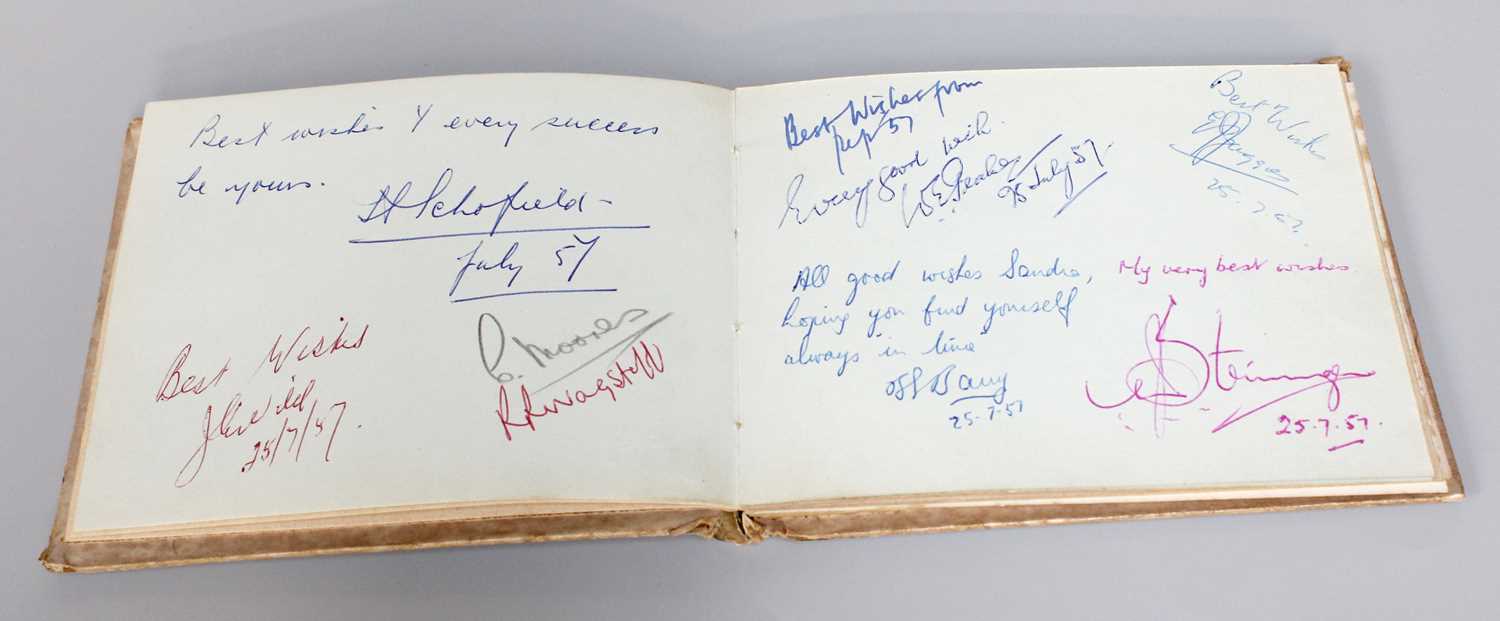 Best wishes & every success
be yours.
H Schofield
July 57
Best Wishes
J
25/7/57.
C. Moores
R Wagstaff
Best Wishes from
57
Every good wish.
W.E.
25 July 57.
Best Wishes
25.7.57.
All good wishes Sandra,
hoping you find yourself
always in line
Barry
25.7.57
My very best wishes
25.7.57.